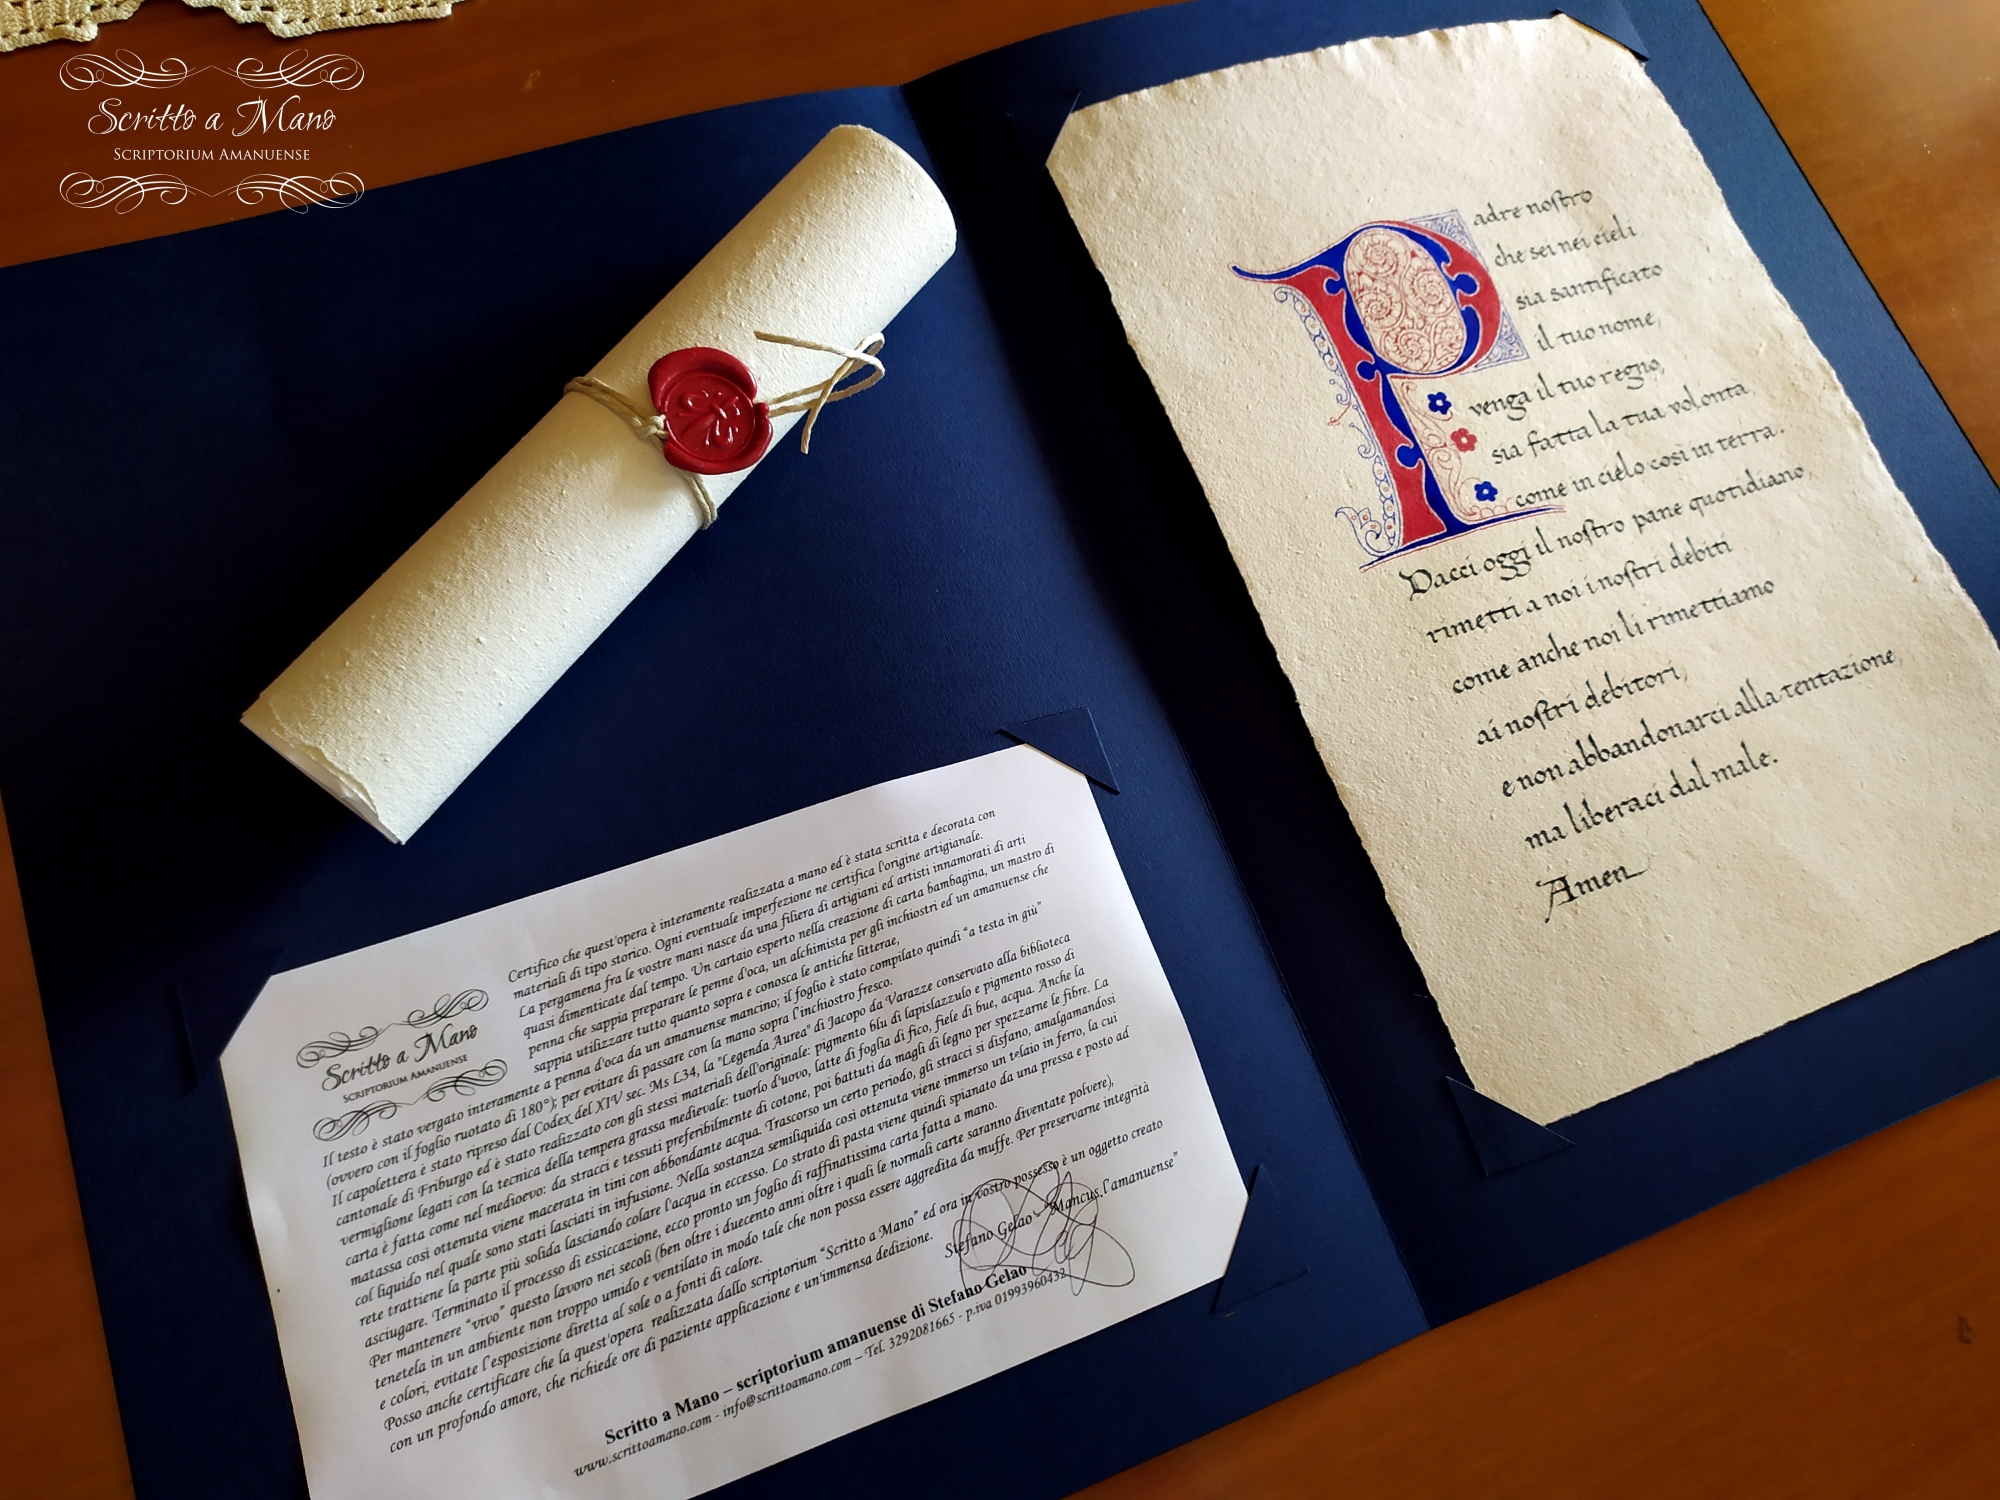 Scritto a Mano
SCRIPTORIUM AMANUENSE
Padre nostro
che sei nei cieli
sia santificato
il tuo nome,
venga il tuo regno,
sia fatta la tua volontà,
come in cielo così in terra.
Dacci oggi il nostro pane quotidiano,
rimetti a noi i nostri debiti
come anche noi li rimettiamo
ai nostri debitori,
e non abbandonarci alla tentazione,
ma liberaci dal male.
Amen
Scritto a Mano
SCRIPTORIUM AMANUENSE
Certifico che quest'opera è interamente realizzata a mano ed è stata scritta e decorata con
materiali di tipo storico. Ogni eventuale imperfezione ne certifica l'origine artigianale.
La pergamena fra le vostre mani nasce da una filiera di artigiani ed artisti innamorati di arti
quasi dimenticate dal tempo. Un cartaio esperto nella creazione di carta bambagina, un mastro di
penna che sappia preparare le penne d'oca, un alchimista per gli inchiostri ed un amanuense che
sappia utilizzare tutto quanto sopra e conosca le antiche litterae,
Il testo è stato vergato interamente a penna d'oca da un amanuense mancino; il foglio è stato compilato quindi "a testa in giù"
(ovvero con il foglio ruotato di 180°); per evitare di passare con la mano sopra l'inchiostro fresco.
Il capolettera è stato ripreso dal Codex del XIV sec. Ms L34, la "Legenda Aurea" di Jacopo da Varazze conservato alla biblioteca
cantonale di Friburgo ed è stato realizzato con gli stessi materiali dell'originale: pigmento blu di lapislazzulo e pigmento rosso di
vermiglione legati con la tecnica della tempera grassa medievale: tuorlo d'uovo, latte di foglia di fico, fiele di bue, acqua. Anche la
carta è fatta come nel medioevo: da stracci e tessuti preferibilmente di cotone, poi battuti da magli di legno per spezzarne le fibre. La
matassa così ottenuta viene macerata in tini con abbondante acqua. Trascorso un certo periodo, gli stracci si disfano, amalgamandosi
col liquido nel quale sono stati lasciati in infusione. Nella sostanza semiliquida così ottenuta viene immerso un telaio in ferro, la cui
rete trattiene la parte più solida lasciando colare l'acqua in eccesso. Lo strato di pasta viene quindi spianato da una pressa e posto ad
asciugare. Terminato il processo di essiccazione, ecco pronto un foglio di raffinatissima carta fatta a mano.
Per mantenere "vivo" questo lavoro nei secoli (ben oltre i duecento anni oltre i quali le normali carte saranno diventate polvere),
tenetela in un ambiente non troppo umido e ventilato in modo tale che non possa essere aggredita da muffe. Per preservarne integrità
e colori, evitate l'esposizione diretta al sole o a fonti di calore.
Posso anche certificare che la quest'opera realizzata dallo scriptorium "Scritto a Mano" ed ora in vostro possesso è un oggetto creato
con un profondo amore, che richiede ore di paziente applicazione e un'immensa dedizione.
Stefano Gelao - "Mancus l'amanuense"
Scritto a Mano – scriptorium amanuense di Stefano Gelao
www.scrittoamano.com - info@scrittoamano.com – Tel. 3292081665 - p.iva 01993960432